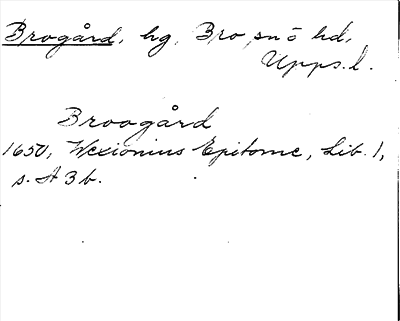 Brogård, hg, Bro sn o hd,
Upps. l.
Broogård
1650, Wexionius Epitome, Lib. 1,
s. A 3 b.